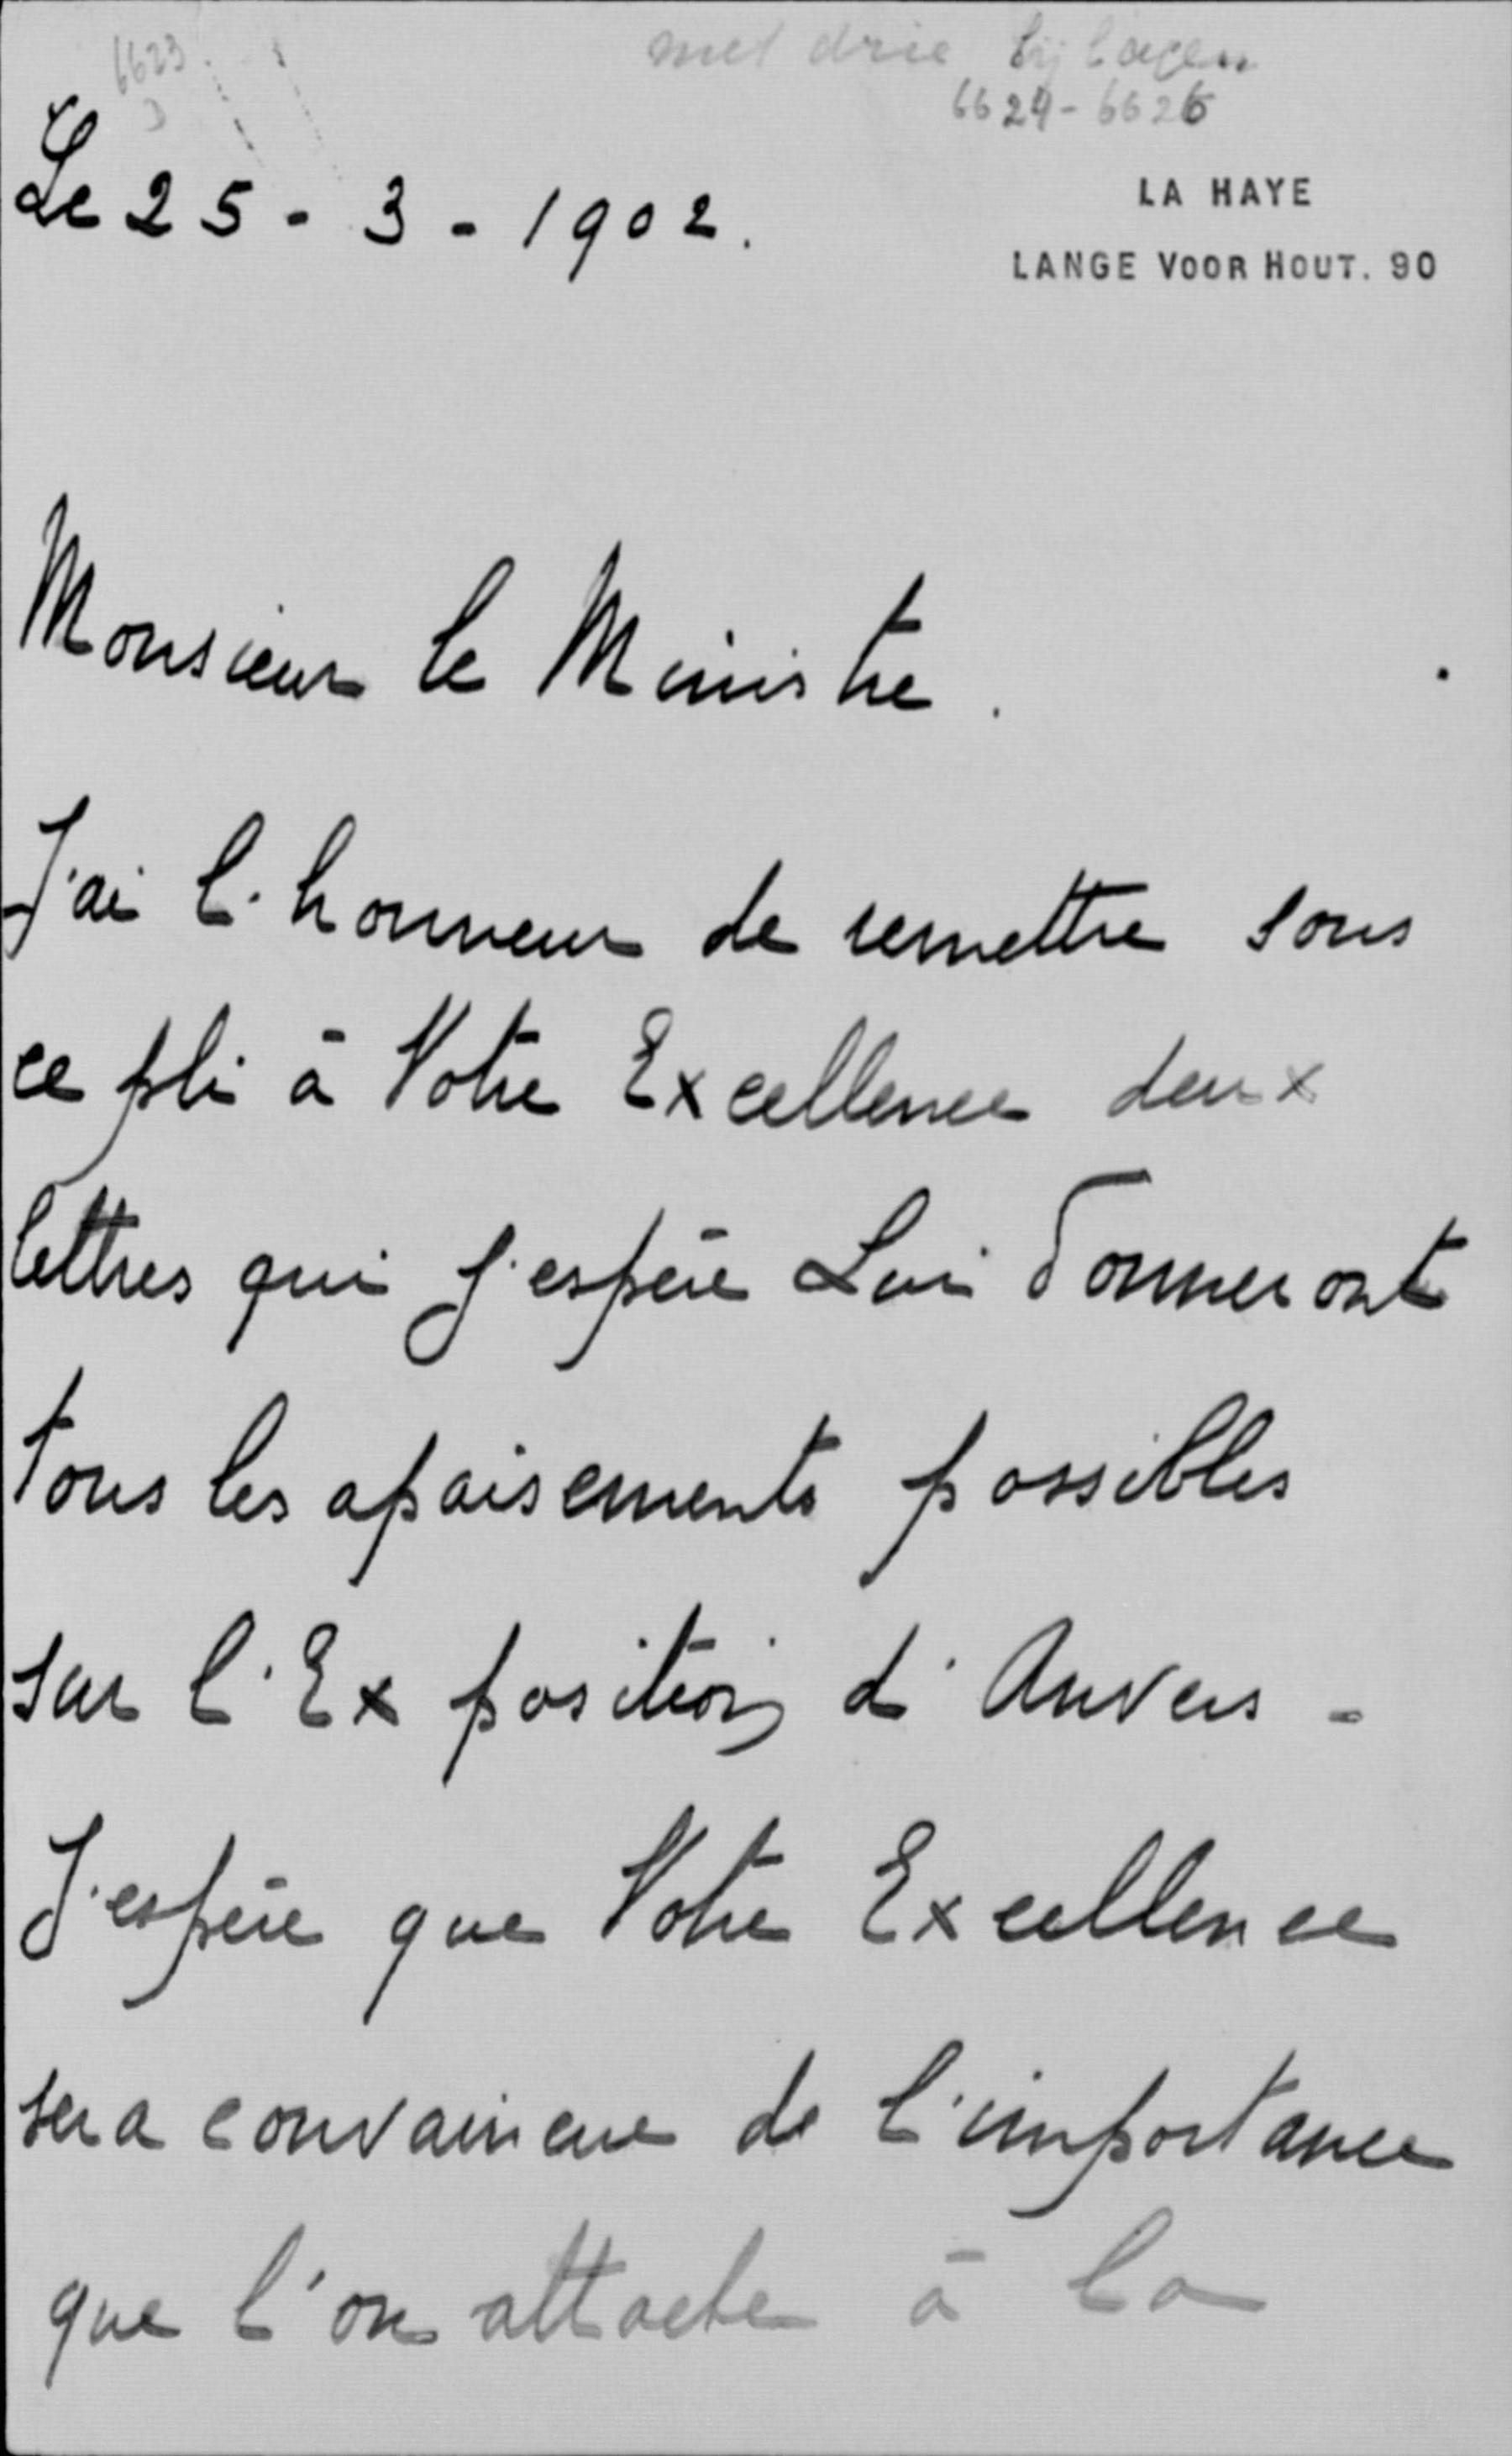 6623
met drie bijlagen
6624-6626
Le 25-3-1902.
LA HAYE
LANGE VOORHOUT. 90
Monsieur le Ministre.
J'ai l'honneur de remettre sous
ce pli à Votre Excellence deux
lettres qui j'espère Lui donneront
tous les apaisements possibles
sur l'Exposition d'Anvers -
J'espère que Votre Excellence
sera convaincue de l'importance
que l'on attache à la